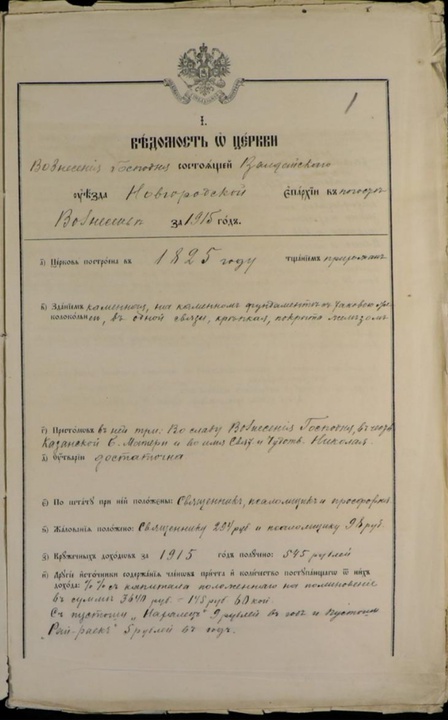 1
І.
ВѢДОМОСТЬ Ѡ ЦЕРКВИ
Вознесенія Господня состоѧщей Валдайскаго
уѣзда Новгородской Єпархіи въ погостѣ
за 1915 годъ.
а) Церковь построена въ 1825 году тщаніемъ прихожанъ
в) Зданіемъ каменная, на каменномъ фундаментѣ съ таковою же
колокольнею, въ одной связи, крѣпкая, покрыта желѣзомъ
г) Престоловъ въ ней три: Во славу Вознесенія Господня, въ честь
Казанской Б. Матери и во имя Свят. и Чудотв. Николая.
д) Утварью достаточна
є) По штату при ней положены: Священникъ, псаломщикъ и просфорня
ѕ) Жалованія положено: Священнику 294 руб и псаломщику 98 руб.
з) Кружечныхъ доходовъ за 1915 годъ получено: 545 рублей
и) Другіе источники содержанія членовъ причта и количество поступающаго ѿ нихъ
дохода: %% съ капитала положеннаго на поминовеніе
въ суммѣ 3640 руб. - 145 руб 60 коп.
Съ пустоши 9 рублей въ годъ и пустоши
"Рай-раекъ" 5 рублей въ годъ.